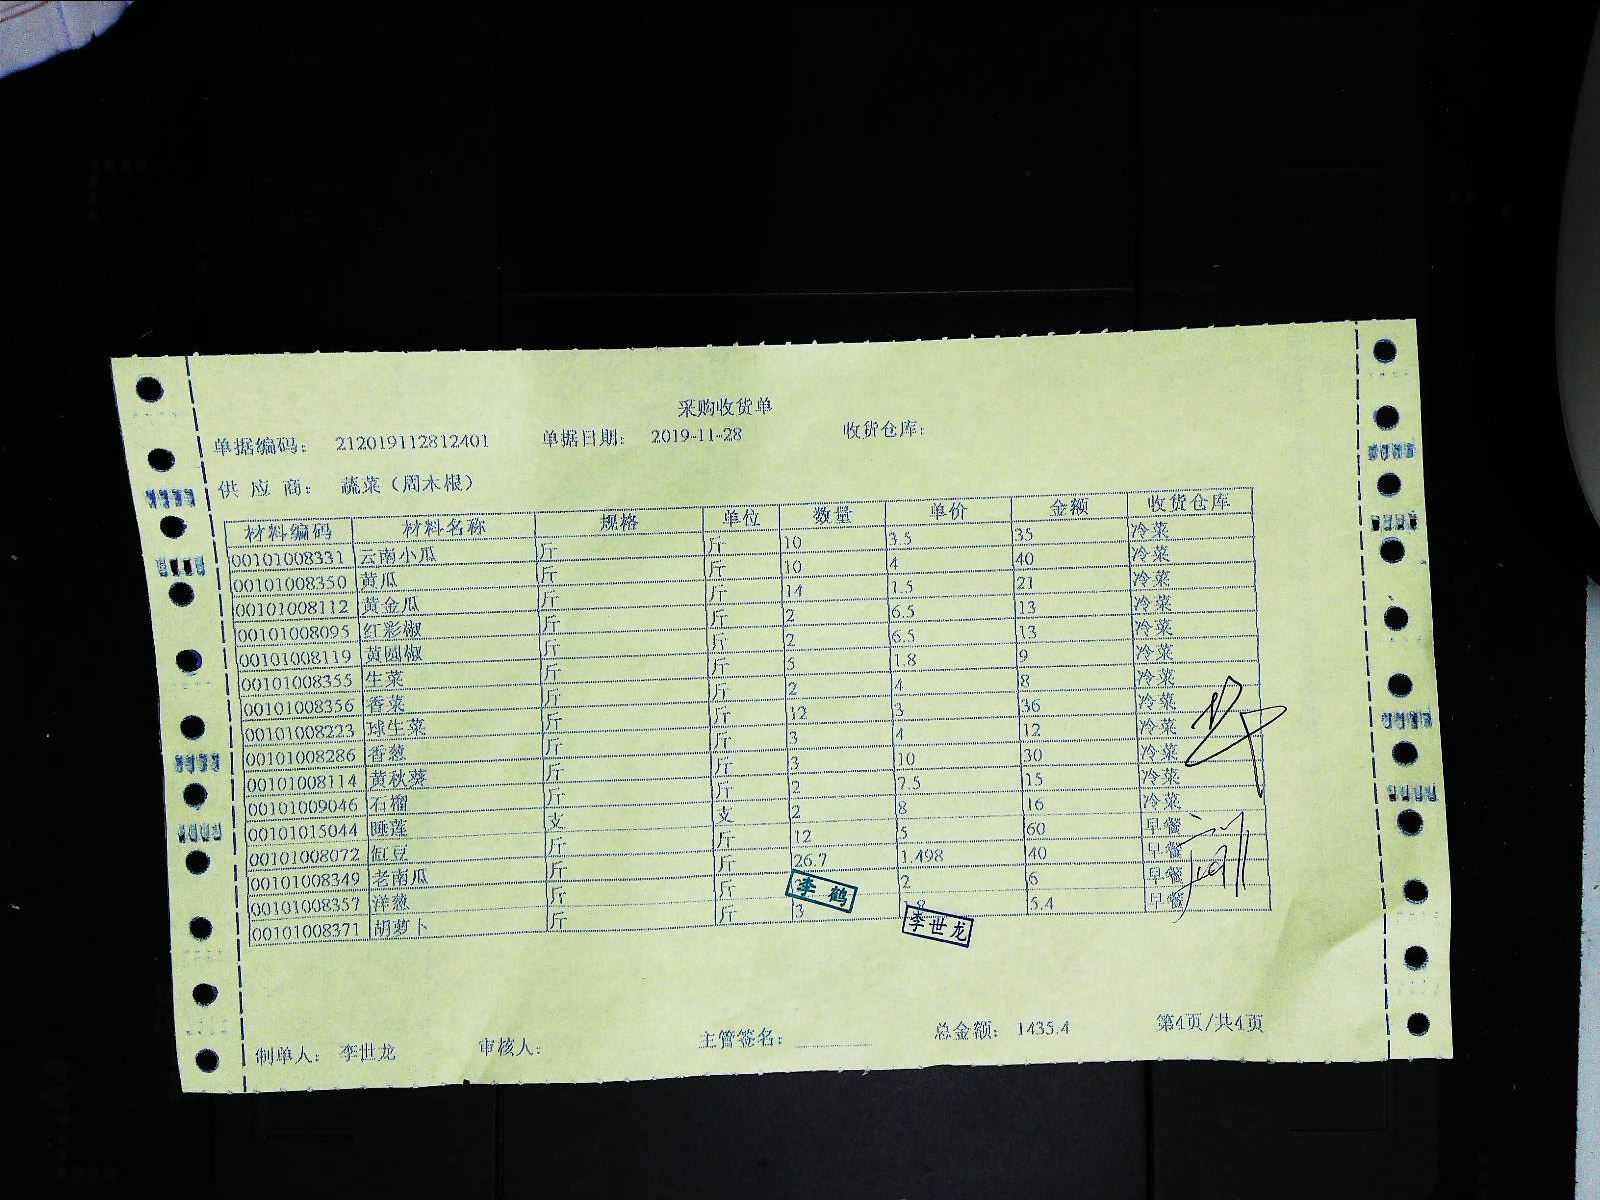 采购收货单
单据编码： 212019112812401 单据日期： 2019-11-28 收货仓库：
供 应 商： 蔬菜（周木根）
材料编码 材料名称 规格 单位 数量 单价 金额 收货仓库
00101008331 云南小瓜 斤 斤 10 3.5 35 冷菜
00101008350 黄瓜 斤 斤 10 4 40 冷菜
00101008112 黄金瓜 斤 斤 14 1.5 21 冷菜
00101008095 红彩椒 斤 斤 2 6.5 13 冷菜
00101008119 黄圆椒 斤 斤 2 6.5 13 冷菜
00101008355 生菜 斤 斤 5 1.8 9 冷菜
00101008356 香菜 斤 斤 2 4 8 冷菜
00101008223 球生菜 斤 斤 12 3 36 冷菜
00101008286 香葱 斤 斤 3 4 12 冷菜
00101008114 黄秋葵 斤 斤 3 10 30 冷菜
00101009046 石榴 斤 斤 2 7.5 15 冷菜
00101015044 睡莲 支 支 2 8 16 冷菜
00101008072 缸豆 斤 斤 12 5 60 早餐
00101008349 老南瓜 斤 斤 26.7 1.498 40 早餐
00101008357 洋葱 斤 斤 2 6 早餐
00101008371 胡萝卜 斤 斤 3 5.4 早餐
李鹤
李世龙
制单人： 李世龙 审核人： 主管签名： 总金额： 1435.4 第4页/共4页